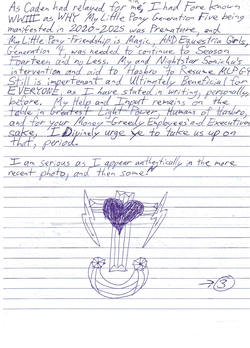 As Caden had relayed for me, I had Fore known
WWIII as WHY My Little Pony Generation Five being
manifested in 2020-2025 was Premature, and
My Little Pony Friendship is Magic, AND Equestria Girls,
Generation 4, was needed to continue to Season
Fourteen and no Less. My and Nightstar Sonichu's
intervention and aid to Hasbro to Resume MLP G4
Still is impertenant and Ultimately Beneficial for
EVERYONE, as I have stated in writing, personally,
before. My Help and Input remains on the
table in Greatest Light Power, Humans of Hasbro,
and for your Money-Greedy Employees and Executives
sake, I Divinely urge ye to take us up on
that, period.
I am serious as I appear authentically in the more
recent photo, and then some!
→ 3